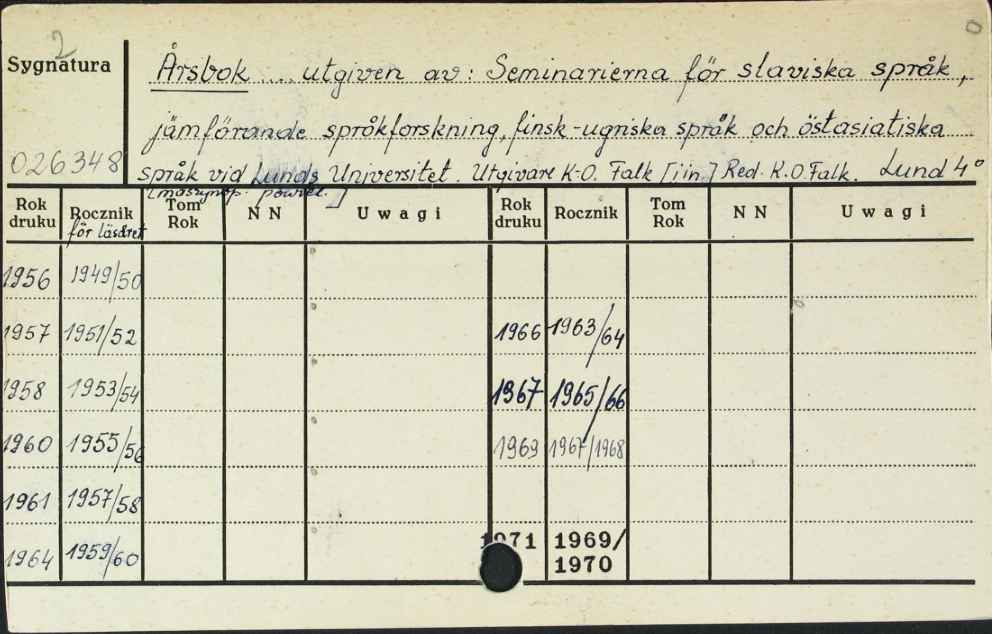 2
Sygnatura
Årsbok .... utgiven av: Seminarierna för slaviska språk,
jämförande språkforskning, finsk-ugriska språk och östasiatiska
026348
språk vid Lunds Universitet. Utgivare K-O. Falk [i in.] Red. K.O. Falk. Lund 4°
[maszynop. powiel.]
Rok druku Rocznik Tom Rok NN Uwagi Rok druku Rocznik Tom Rok NN Uwagi
för läsåret
1956 1949/50
1957 1951/52 1966 1963/64
1958 1953/54 1967 1965/66
1960 1955/56 1969 1967/1968
1961 1957/58
1964 1959/60 1971 1969/
1970